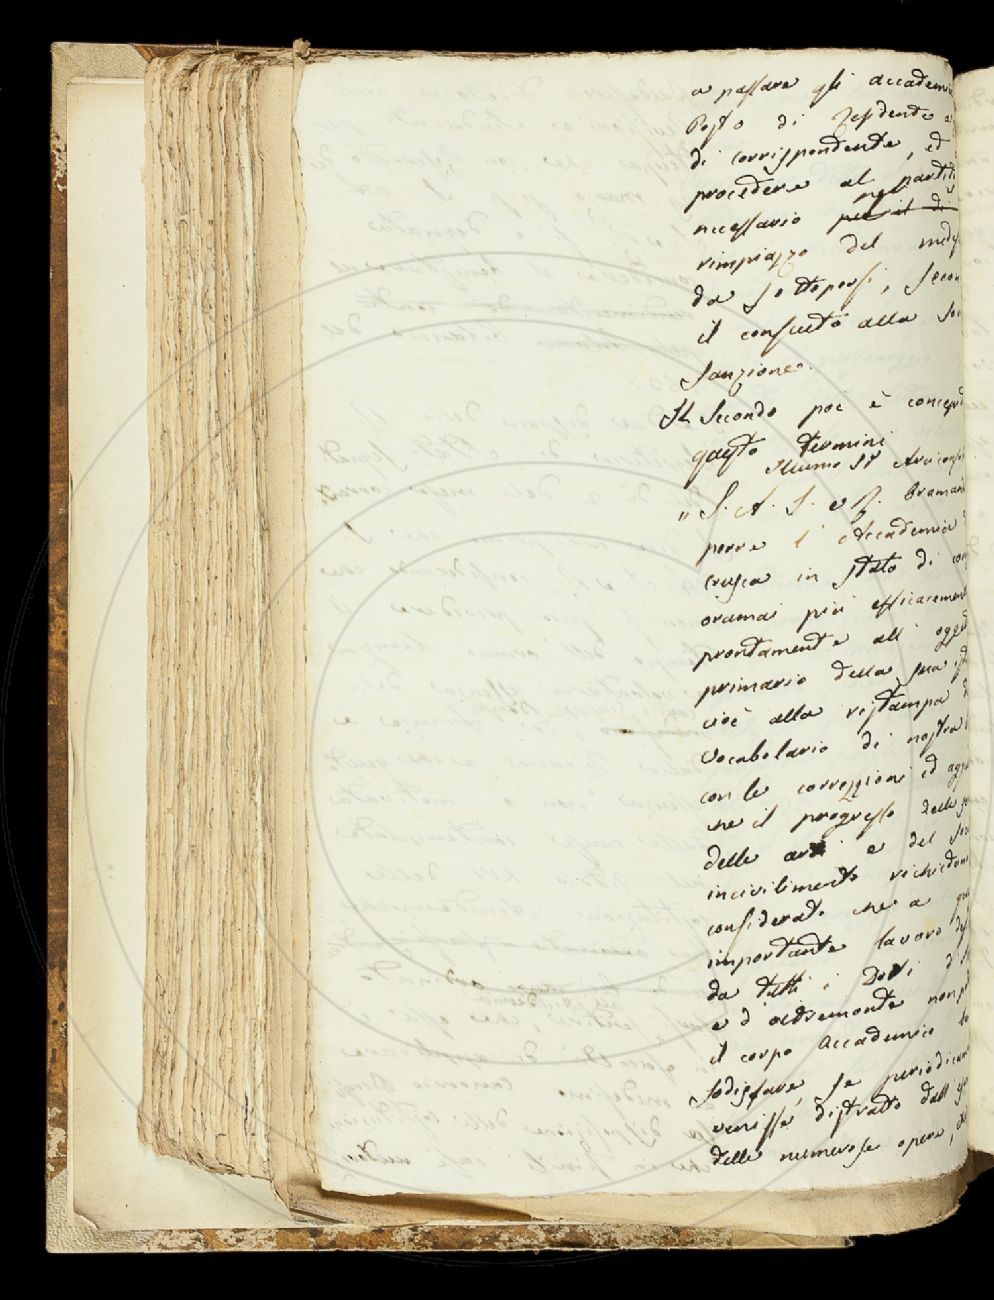 a passare gli accademi
Posto di Residente a
di corrispondente, ed
procedere al partit
necessario per il di nel
rimpiazzo del mede
da sottoporsi, secon
il consueto alla So
Sanzione.
Il Secondo poi è concepi
questo termini
Illumo Sr Arciconso
„ S. A. I. e R. braman
porre l'Accademia
Crusca in stato di co
oramai più efficacemen
prontamente all' ogge
primario della sua
cioè alla ristampa d
Vocabolario di nostra
con le correzzioni ed agg
che il progresso delle
delle arti e del So
incivilimento richiedon
considerato che a qu
importante lavoro de
da tutti i Dotti d'
e d'oltremonte non p
il corpo Accademico
sodisfare, se periodicam
venisse distratto dall'
delle numerose opere,